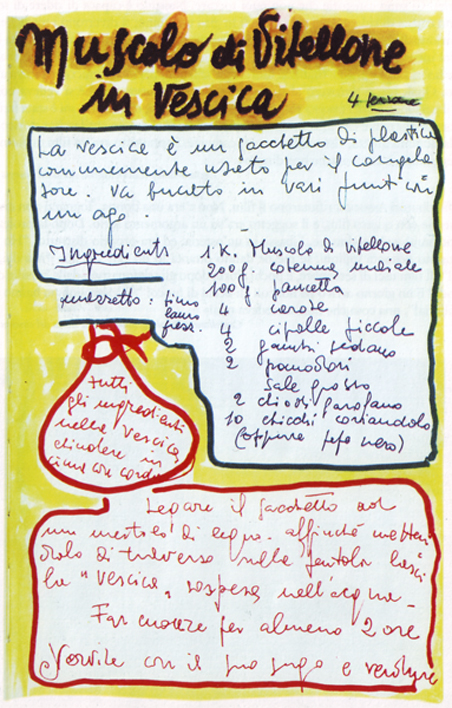 Muscolo di Vitellone
in Vescica
4 persone
La vescica è un sacchetto di plastica
comunemente usato per il congela
tore. Va bucato in vari punti con
un ago.
Ingredienti 1 K. Muscolo di vitellone
200 g. cotenna maiale
100 g. pancetta
mazzetto: timo
lauro
prezz.
4 carote
4 cipolle piccole
2 gambi sedano
2 pomodori
Sale grosso
2 chiodi garofano
10 chicchi coriandolo
(oppure pepe nero)
Tutti
gli ingredienti
nella Vescica
chiudere in
cima con corda
Legare il sacchetto ad
un mestolo di legno affinché metten
dolo di traverso sulla pentola lasci
la "vescica" sospesa nell'acqua -
Far cuocere per almeno 2 ore
Servite con il suo sugo e verdure